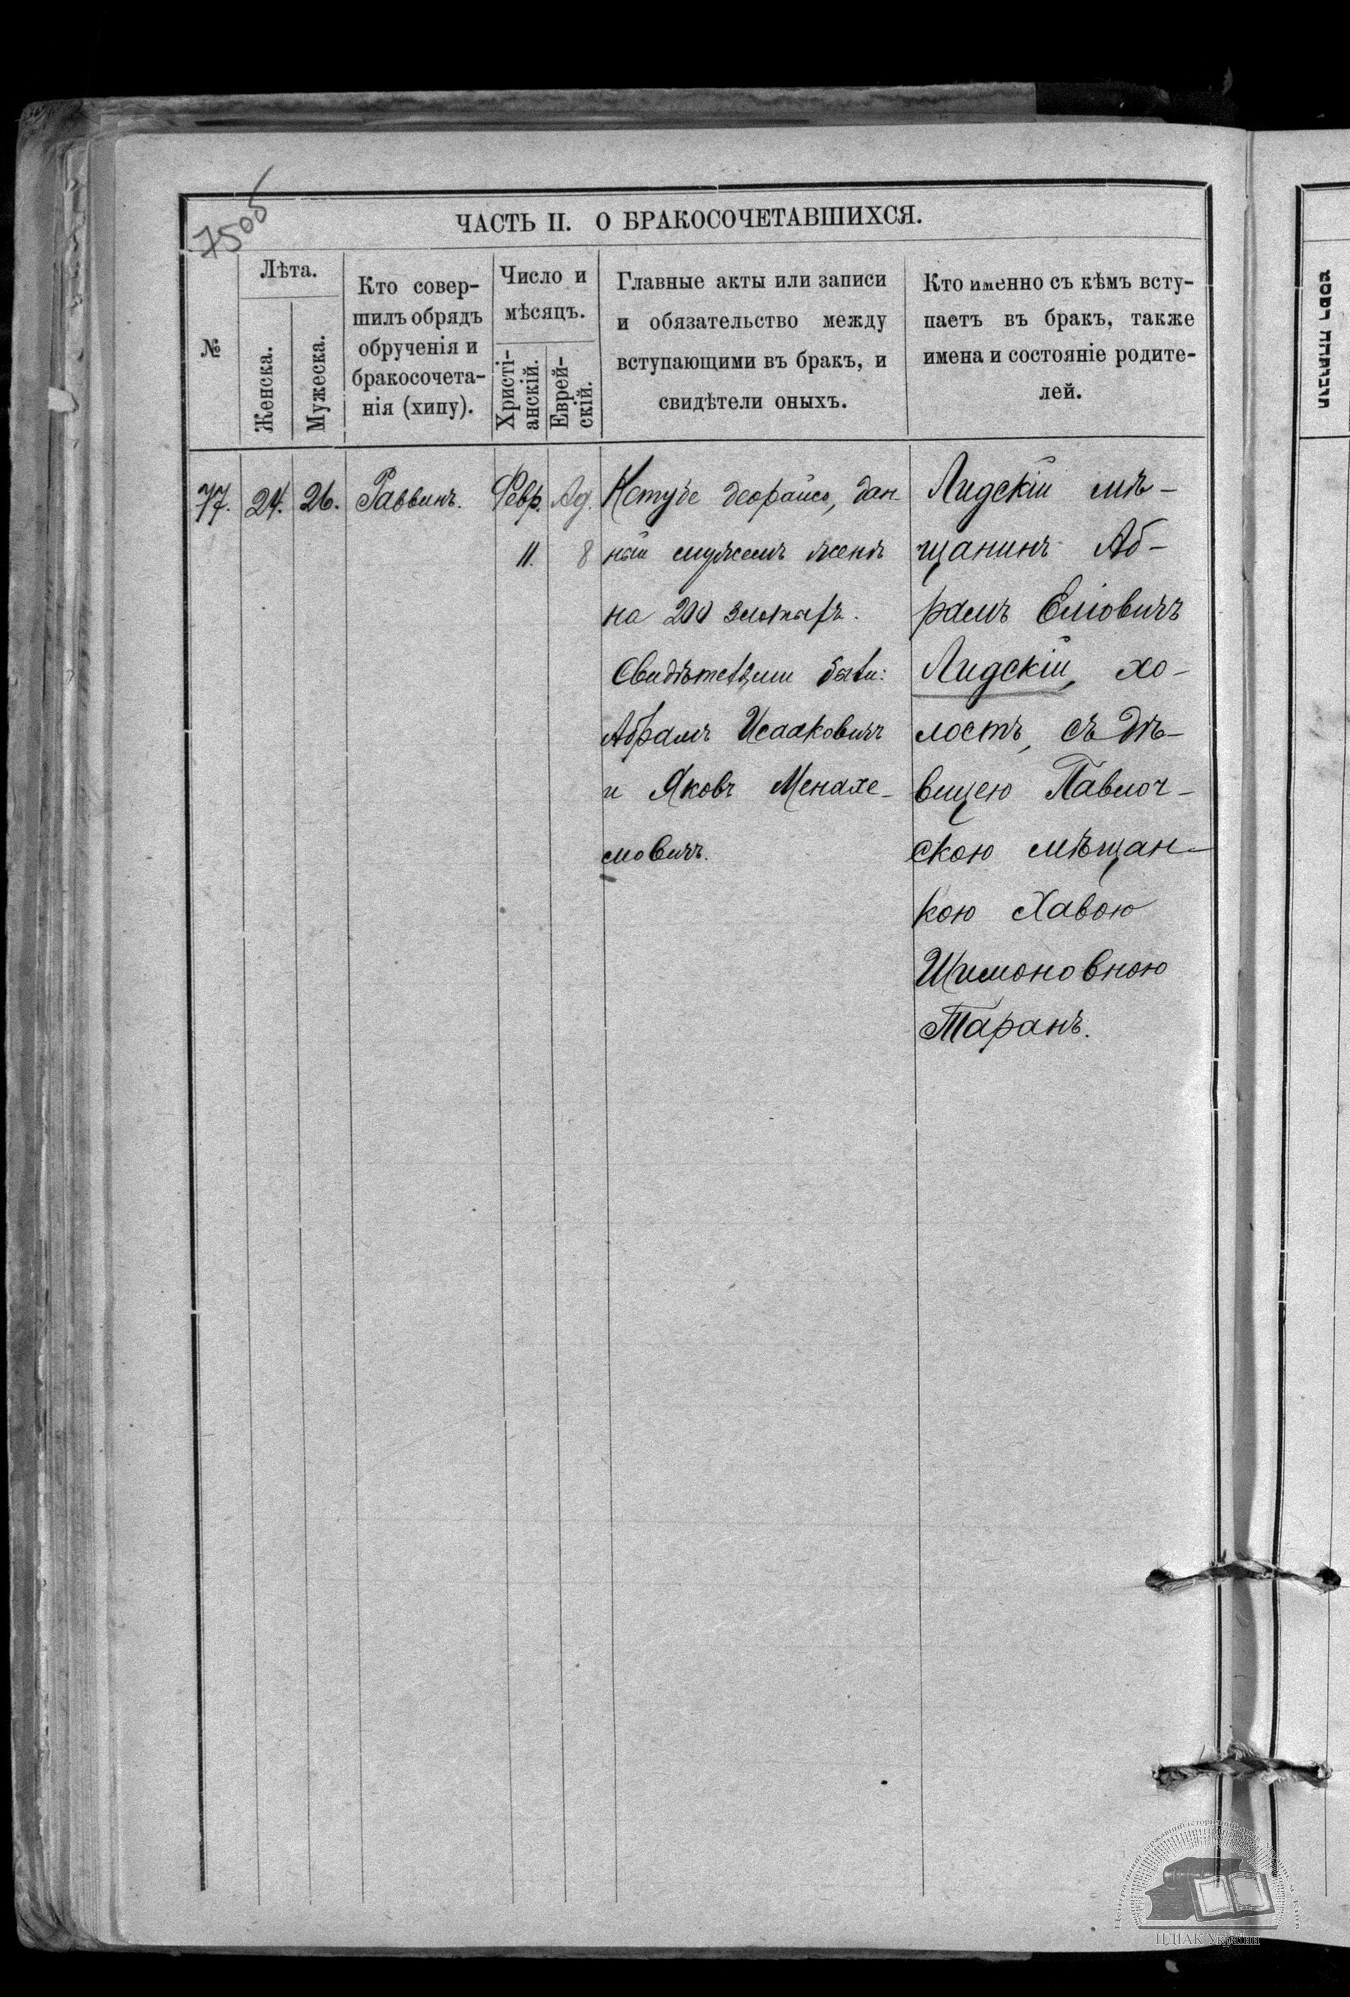 75об
ЧАСТЬ II. О БРАКОСОЧЕТАВШИХСЯ.
№
Лѣта.
Женска.
Мужеска.
Кто совер-
шилъ обрядъ
обрученія и
бракосочета-
нія (хипу).
Число и
мѣсяцъ.
Христі-
анскій.
Еврей-
скій.
Главные акты или записи
и обязательство между
вступающими въ бракъ, и
свидѣтели оныхъ.
Кто именно съ кѣмъ всту-
паетъ въ бракъ, также
имена и состояніе родите-
лей.
77.
24.
26.
Раввинъ.
Февр.
11.
Ад.
8
Кетубе деорайсе, дан
ный мужемъ женѣ
на 200 злотыхъ.
Свидѣтелями были:
Абрамъ Исааковичъ
и Яковъ Менахе-
мовичъ.
Лидскій мѣ-
щанинъ Аб-
рамъ Еліовичъ
Лидскій, хо-
лостъ, съ дѣ-
вицею Паволоч-
скою мѣщан-
кою Хавою
Шимоновною
Таранъ.
ЦДІАК України